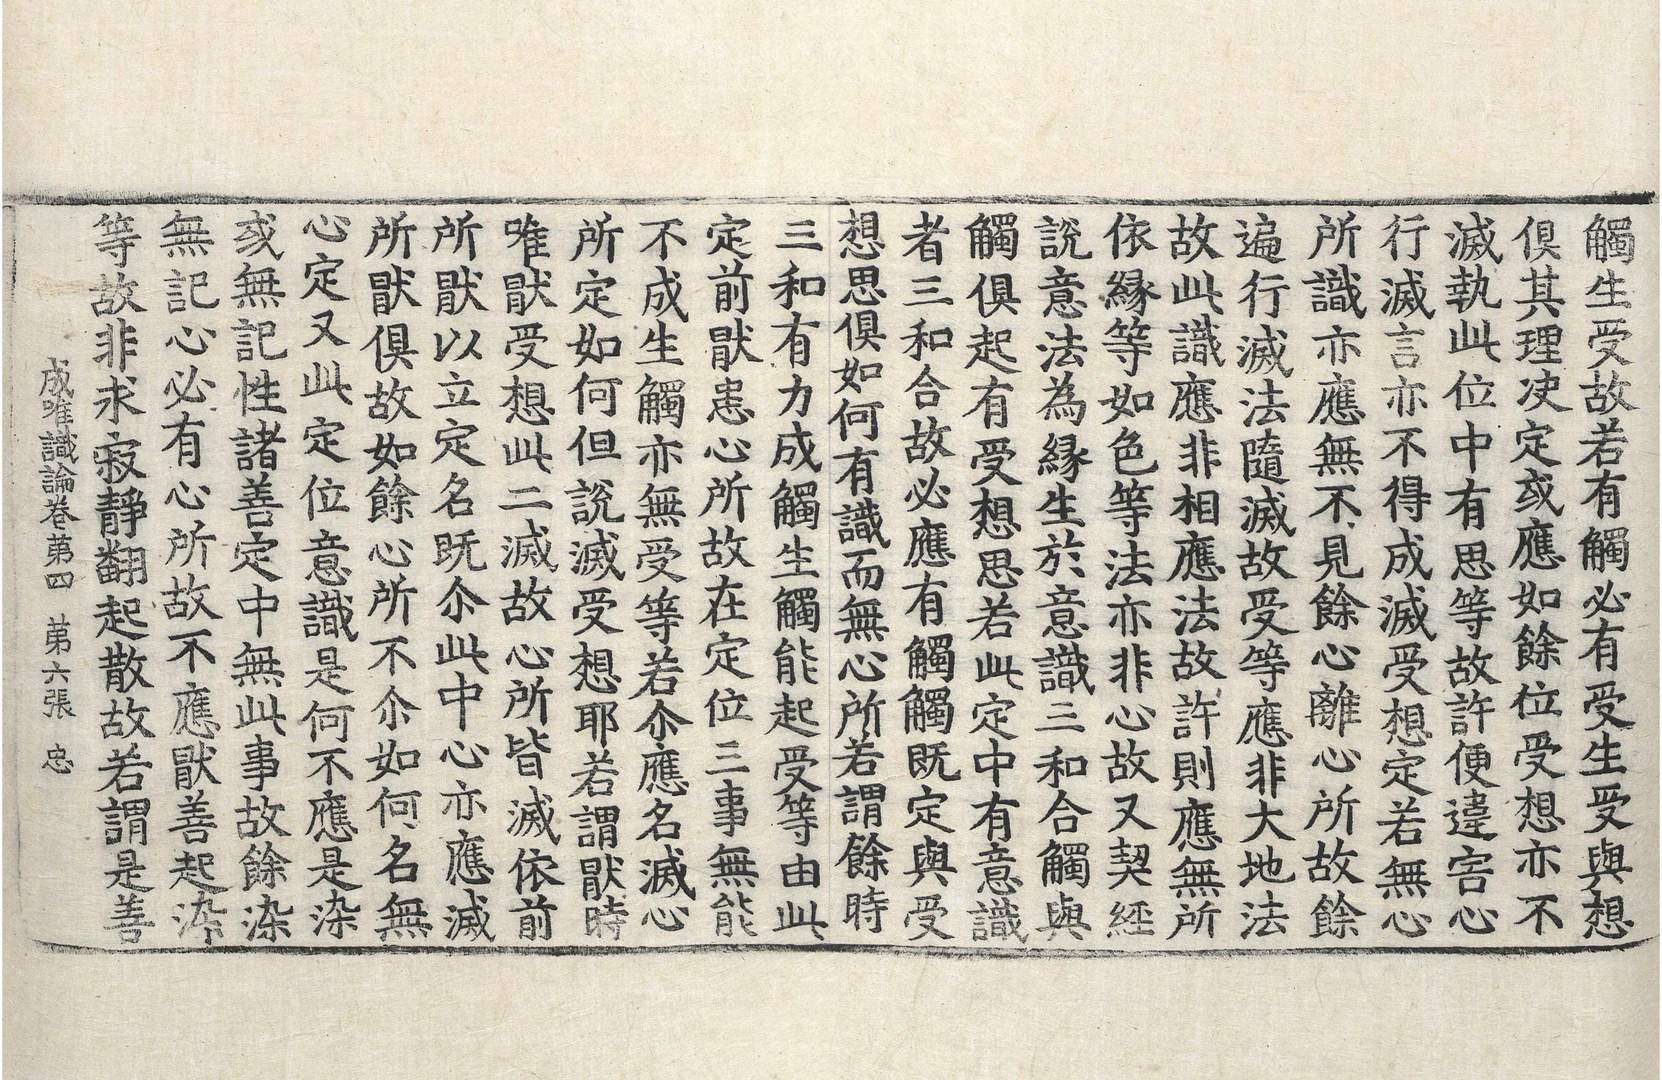 觸生受故若有觸必有受生受與想
俱其理决定或應如餘位受想亦不
滅執此位中有思等故許便違害心
行滅言亦不得成滅受想定若無心
所識亦應無不見餘心離心所故餘
遍行滅法隨滅故受等應非大地法
故此識應非相應法故許則應無所
依緣等如色等法亦非心故又契經
說意法為緣生於意識三和合觸與
觸俱起有受想思若此定中有意識
者三和合故必應有觸觸既定與受
想思俱如何有識而無心所若謂餘時
三和有力成觸生觸能起受等由此
定前猒患心所故在定位三事無能
不成生觸亦無受等若尒應名滅心
所定如何但說滅受想耶若謂猒時
唯猒受想此二滅故心所皆滅依前
所猒以立定名既尒此中心亦應滅
所猒俱故如餘心所不尒如何名無
心定又此定位意識是何不應是染
或無記性諸善定中無此事故餘染
無記心必有心所故不應猒善起染
等故非求寂靜翻起散故若謂是善
成唯識論卷第四　第六張　忠